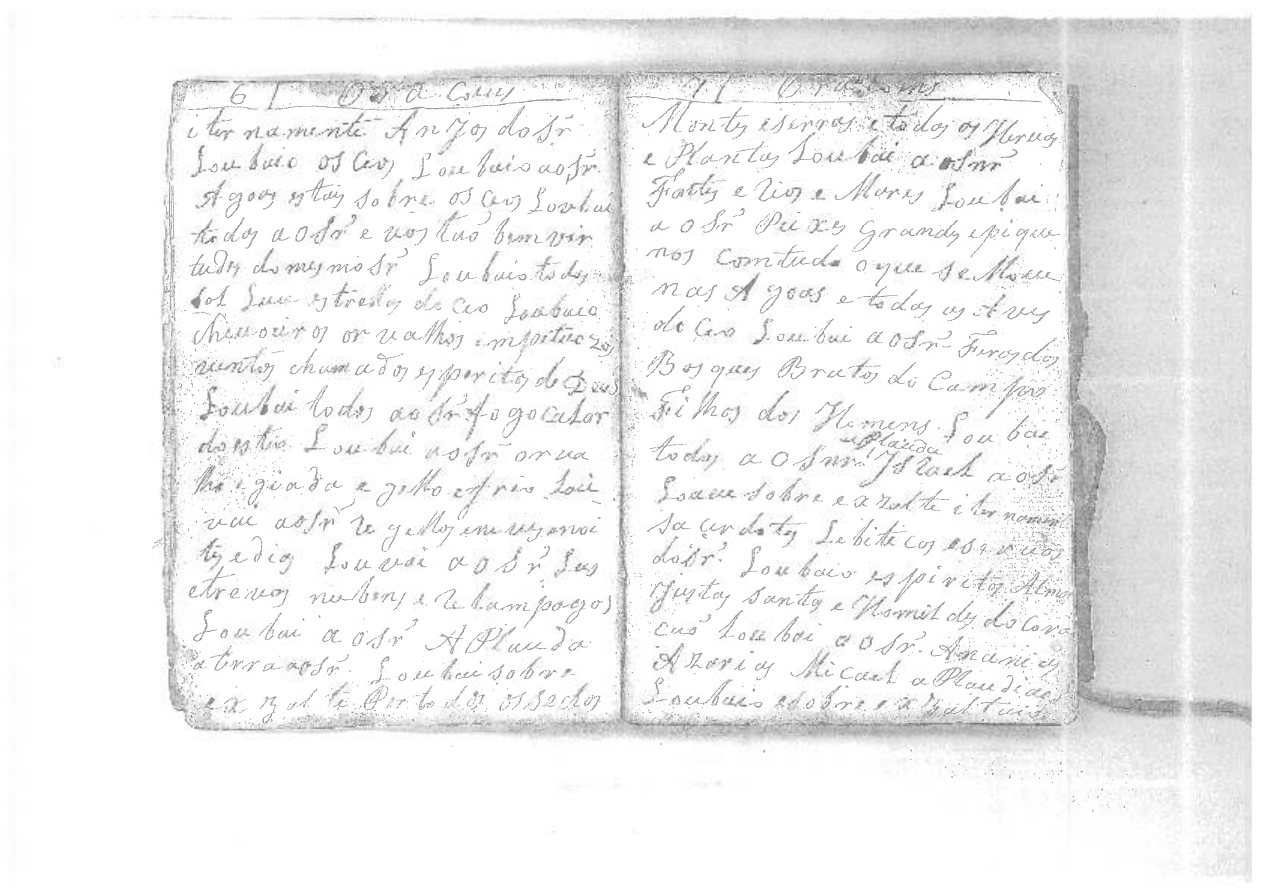 6 Oracouis
iternamente Anjos do Sr̃
Loubaio os Ceos Loubaio ao Sr̃
Agoas estais sobre os Ceos Loubai
todos ao Sr̃ e vos tuas bem vir
tudes do mesmo Sr̃ Loubaio todos
Sol Lua estrellas do Ceo Loubaio
chuvoeiros orvalhos impituozos
ventos chamados espiritos de Deos
Loubai todos ao Sr̃ fogo calor
do estio Loubai ao Sr̃ orva
lho e giada e gello e frio Lou
vai ao Sr̃ gellos e neves e noi
tes e dias Louvai ao Sr̃ Lus
e trevas nubens e relampagos
Loubai ao Sr̃ Aplauda
a terra ao Sr̃ Loubai sobre
exzalte Per todos os
7 Oracoins
Montes e serros e todos os
e Plantas Loubai ao Snr̃
Fontes e Rios e Mares Loubai
ao Sr̃ Peixes Grandes e pique
nos com tudo o que se Move
nas Agoas e todas as Aves
do Ceo Loubai ao Sr̃ Feras dos
Bosques Brutos do Campo
Filhos dos Homens Loubai
todos ao Snr̃ aplauda Israel ao Sr̃
Louve sobre exzalte iternament
sacerdotes Lebiticos e servos
do Sr̃ Loubaio espiritos Almas
Justas santos e Homildes do Cora
cas Loubai ao Sr̃ Ananias
Azarias Micael aPlaudiao
Loubaio e sobre exzaltaio